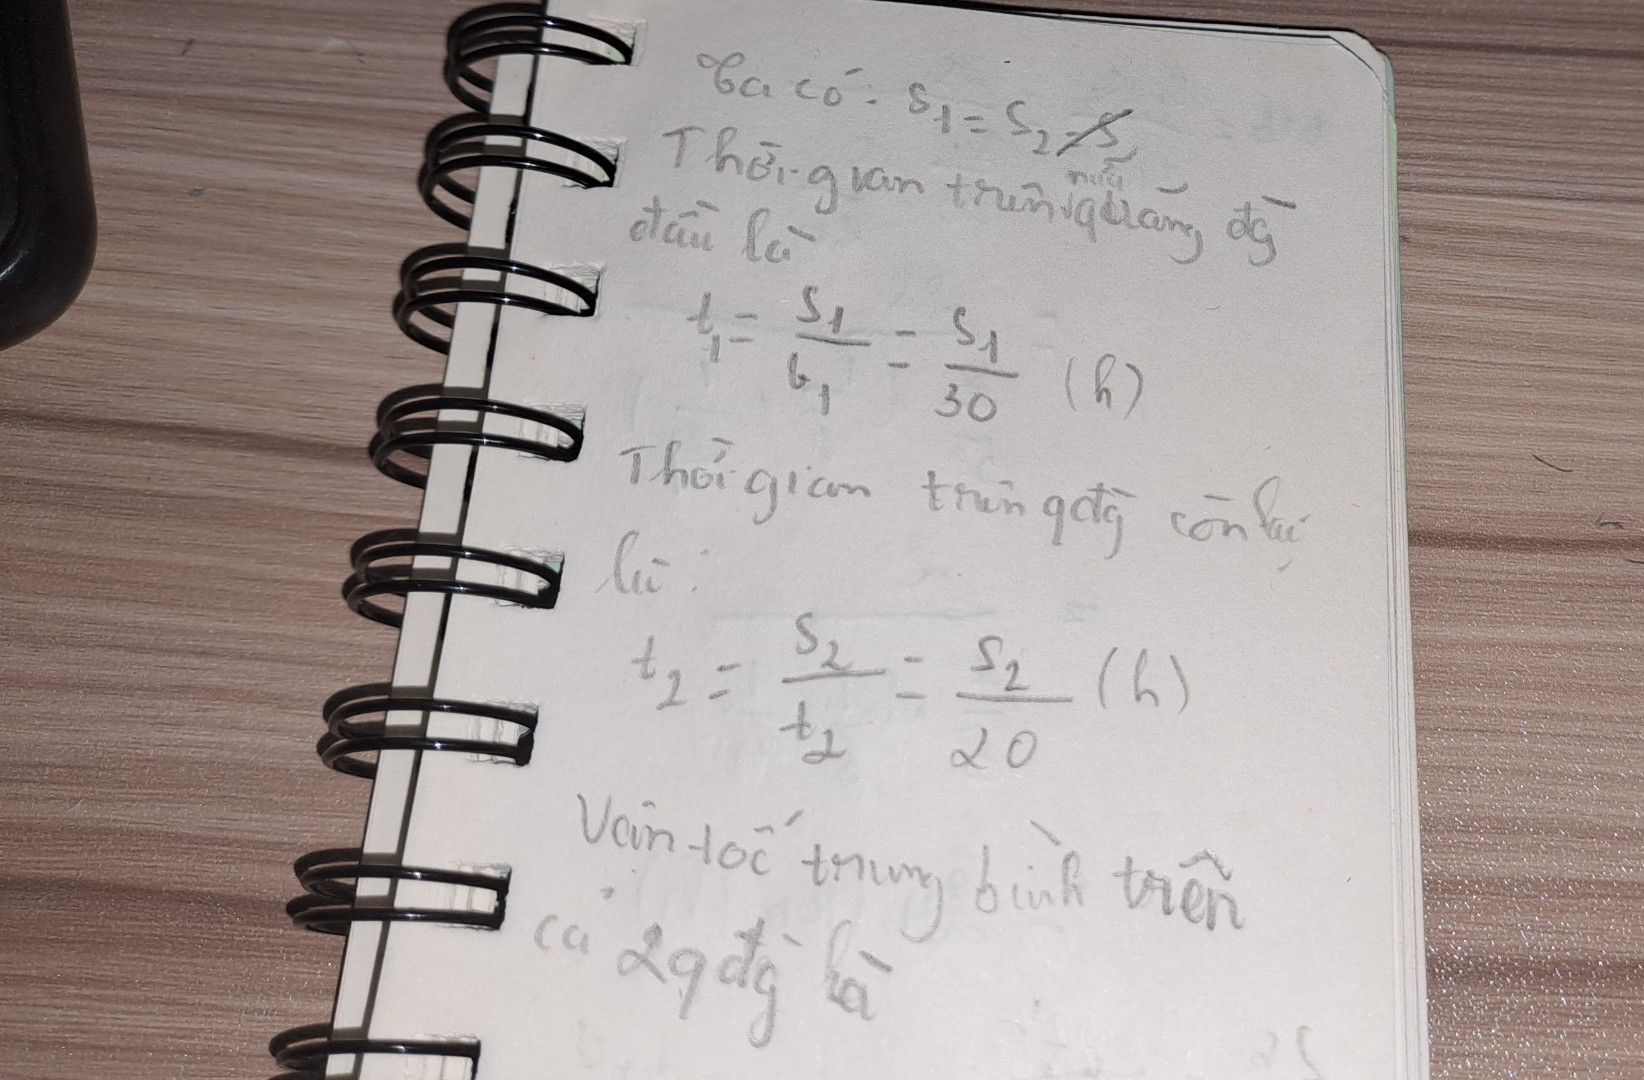 Ta có: S1 = S2
Thời gian trên nửa quãng đg
đầu là
t1 = S1/v1 = S1/30 (h)
Thời gian trên qđg còn lại
là:
t2 = S2/t2 = S2/20 (h)
Vận tốc trung bình trên
cả 2 qđg là